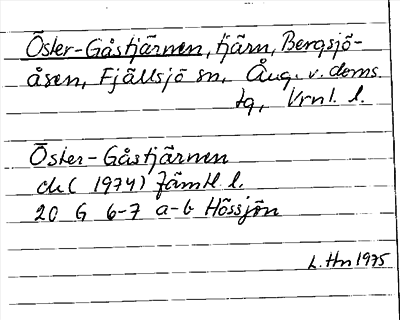 Öster-Gåstjärnen, tjärn, Bergsjö-
åsen, Fjällsjö sn, Ång. v. doms.
tg, Vrnl. l.
Öster-Gåstjärnen
ek (1974) Jämtl l.
20 G 6-7 a-b Hössjön
L. Hn 1975